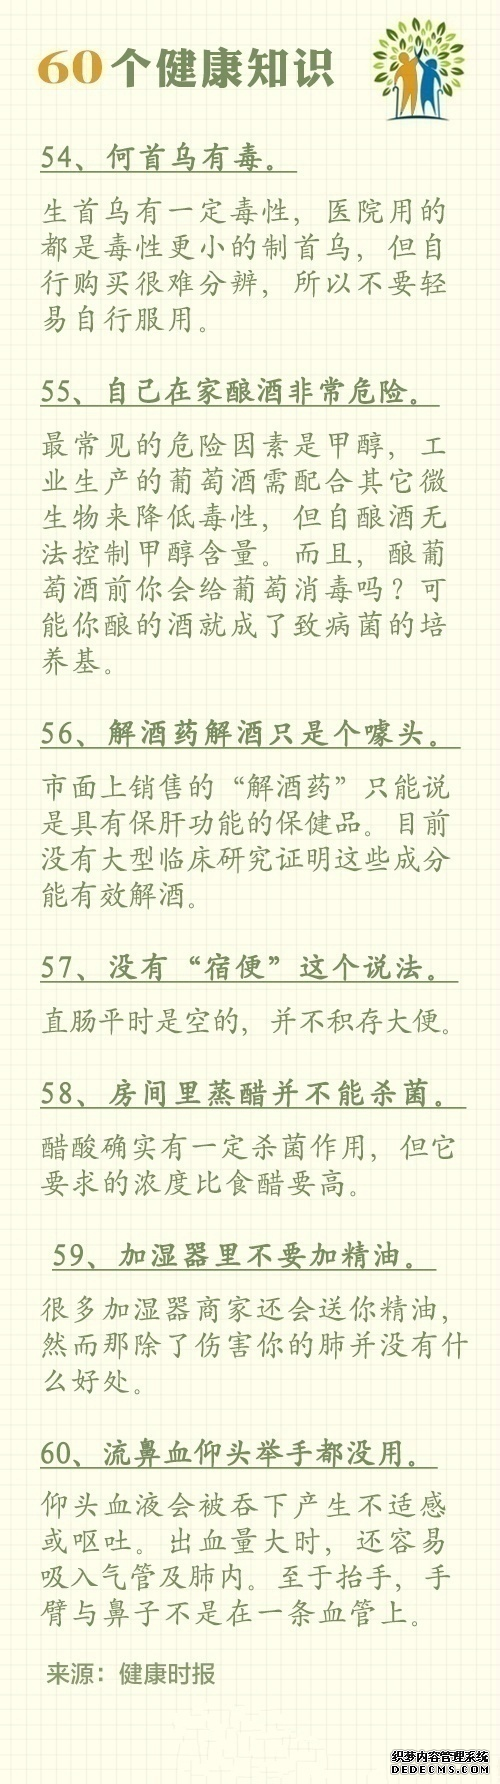 60个健康知识
54、何首乌有毒。
生首乌有一定毒性，医院用的
都是毒性更小的制首乌，但自
行购买很难分辨，所以不要轻
易自行服用。
55、自己在家酿酒非常危险。
最常见的危险因素是甲醇，工
业生产的葡萄酒需配合其它微
生物来降低毒性，但自酿酒无
法控制甲醇含量。而且，酿葡
萄酒前你会给葡萄消毒吗？可
能你酿的酒就成了致病菌的培
养基。
56、解酒药解酒只是个噱头。
市面上销售的“解酒药”只能说
是具有保肝功能的保健品。目前
没有大型临床研究证明这些成分
能有效解酒。
57、没有“宿便”这个说法。
直肠平时是空的，并不积存大便。
58、房间里蒸醋并不能杀菌。
醋酸确实有一定杀菌作用，但它
要求的浓度比食醋要高。
59、加湿器里不要加精油。
很多加湿器商家还会送你精油，
然而那除了伤害你的肺并没有什
么好处。
60、流鼻血仰头举手都没用。
仰头血液会被吞下产生不适感
或呕吐。出血量大时，还容易
吸入气管及肺内。至于抬手，手
臂与鼻子不是在一条血管上。
来源：健康时报
织梦内容管理系统
DEDECMS.COM